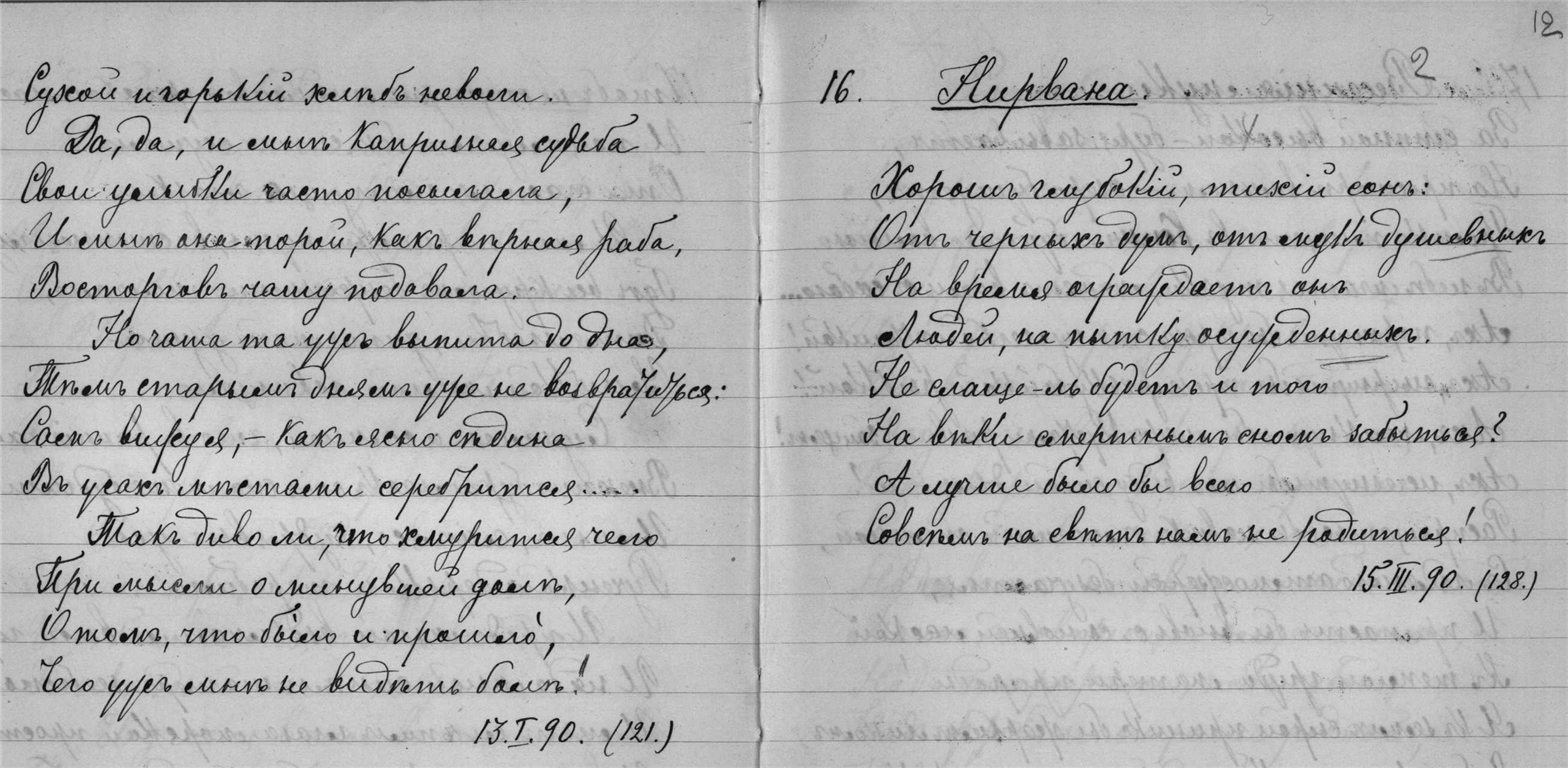 Сухой и горькій хлѣбъ неволи.
Да, да, и мнѣ капризная судьба
Свои улыбки часто посылала,
И мнѣ она порой, какъ вѣрная раба,
Восторговъ чашу подавала.
Но чаша та ужъ выпита до дна,
Тѣмъ старымъ днямъ уже не возвратиться:
Самъ вижу я, – какъ ясно сѣдина
Въ усахъ мѣстами серебрится.....
Такъ диво ли, что хмурится чело
При мысли о минувшей долѣ,
О томъ, что бы́ло и прошло́,
Чего ужъ мнѣ не видѣть болѣ!
13.I.90. (121.)
12
2
16. Нирвана.
Хорошъ глубокій, тихій сонъ:
Отъ черныхъ думъ, отъ мукъ душевныхъ
На время ограждаетъ онъ
Людей, на пытку осужденныхъ.
Не слаще-ль будетъ и того
На вѣки смертнымъ сномъ забыться?
А лучше было бы всего
Совсѣмъ на свѣтъ намъ не родиться!
15.III.90. (128.)